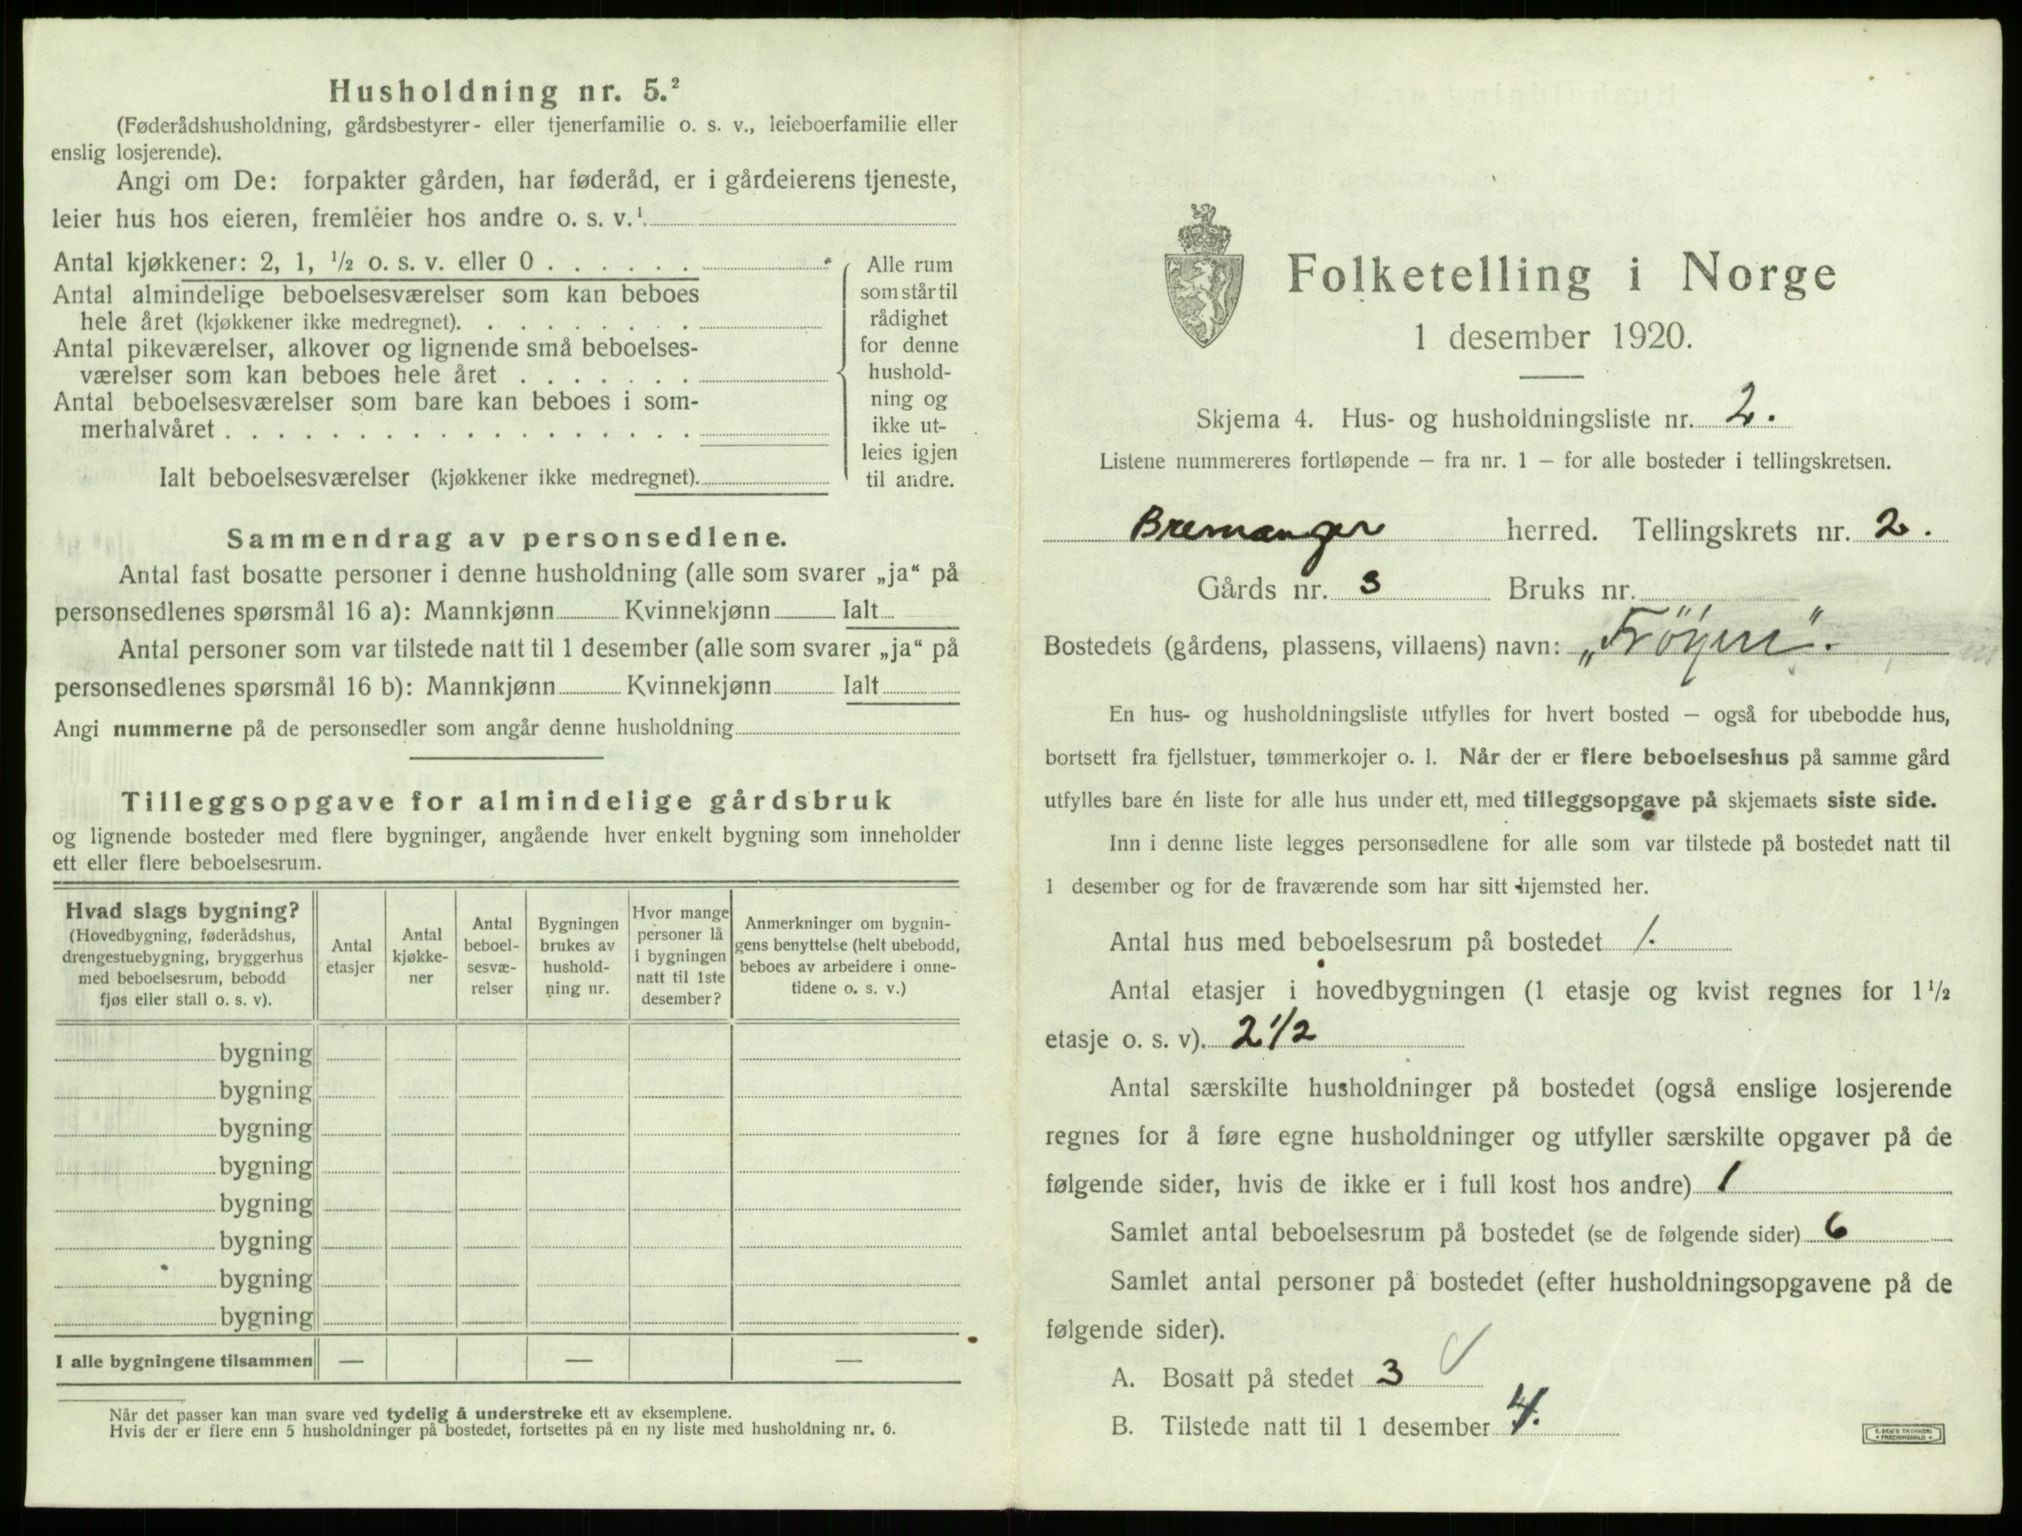 Husholdning nr. 5.²
(Føderådshusholdning, gårdsbestyrer- eller tjenerfamilie o. s. v., leieboerfamilie eller
enslig losjerende).
Angi om De: forpakter gården, har føderåd, er i gårdeierens tjeneste,
leier hus hos eieren, fremleier hos andre o. s. v.¹
Antal kjøkkener: 2, 1, ½ o. s. v. eller 0 . . . . . .
Antal almindelige beboelsesværelser som kan beboes
hele året (kjøkkener ikke medregnet). . . . . . . . .
Antal pikeværelser, alkover og lignende små beboelses-
værelser som kan beboes hele året . . . . . . .
Antal beboelsesværelser som bare kan beboes i som-
merhalvåret . . . . . . . . . . . . . . . . . .
Ialt beboelsesværelser (kjøkkener ikke medregnet).
Alle rum
som står til
rådighet
for denne
hushold-
ning og
ikke ut-
leies igjen
til andre.
Sammendrag av personsedlene.
Antal fast bosatte personer i denne husholdning (alle som svarer „ja“ på
personsedlenes spørsmål 16 a): Mannkjønn Kvinnekjønn Ialt
Antal personer som var tilstede natt til 1 desember (alle som svarer „ja“ på
personsedlenes spørsmål 16 b): Mannkjønn Kvinnekjønn Ialt
Angi nummerne på de personsedler som angår denne husholdning
Tilleggsopgave for almindelige gårdsbruk
og lignende bosteder med flere bygninger, angående hver enkelt bygning som inneholder
ett eller flere beboelsesrum.
Hvad slags bygning?
(Hovedbygning, føderådshus,
drengestuebygning, bryggerhus
med beboelsesrum, bebodd
fjøs eller stall o. s. v).
Antal
etasjer
Antal
kjøkke-
ner
Antal
beboel-
sesvæ-
relser
Bygningen
brukes av
hushold-
ning nr.
Hvor mange
personer lå
i bygningen
natt til 1ste
desember?
Anmerkninger om bygnin-
gens benyttelse (helt ubebodd,
beboes av arbeidere i onne-
tidene o. s. v.)
bygning
bygning
bygning
bygning
bygning
bygning
bygning
bygning
I alle bygningene tilsammen — — —
Når det passer kan man svare ved tydelig å understreke ett av eksemplene.
Hvis der er flere enn 5 husholdninger på bostedet, fortsettes på en ny liste med husholdning nr. 6.
Folketelling i Norge
1 desember 1920.
Skjema 4. Hus- og husholdningsliste nr. 2.
Listene nummereres fortløpende – fra nr. 1 – for alle bosteder i tellingskretsen.
Bremanger herred. Tellingskrets nr. 2.
Gårds nr. 3 Bruks nr.
Bostedets (gårdens, plassens, villaens) navn: „Fröyen“.
En hus- og husholdningsliste utfylles for hvert bosted – også for ubebodde hus,
bortsett fra fjellstuer, tømmerkojer o. l. Når der er flere beboelseshus på samme gård
utfylles bare én liste for alle hus under ett, med tilleggsopgave på skjemaets siste side.
Inn i denne liste legges personsedlene for alle som var tilstede på bostedet natt til
1 desember og for de fraværende som har sitt hjemsted her.
Antal hus med beboelsesrum på bostedet 1.
Antal etasjer i hovedbygningen (1 etasje og kvist regnes for 1½
etasje o. s. v). 2 1/2
Antal særskilte husholdninger på bostedet (også enslige losjerende
regnes for å føre egne husholdninger og utfyller særskilte opgaver på de
følgende sider, hvis de ikke er i full kost hos andre) 1
Samlet antal beboelsesrum på bostedet (se de følgende sider) 6
Samlet antal personer på bostedet (efter husholdningsopgavene på de
følgende sider).
A. Bosatt på stedet 3
B. Tilstede natt til 1 desember 4.